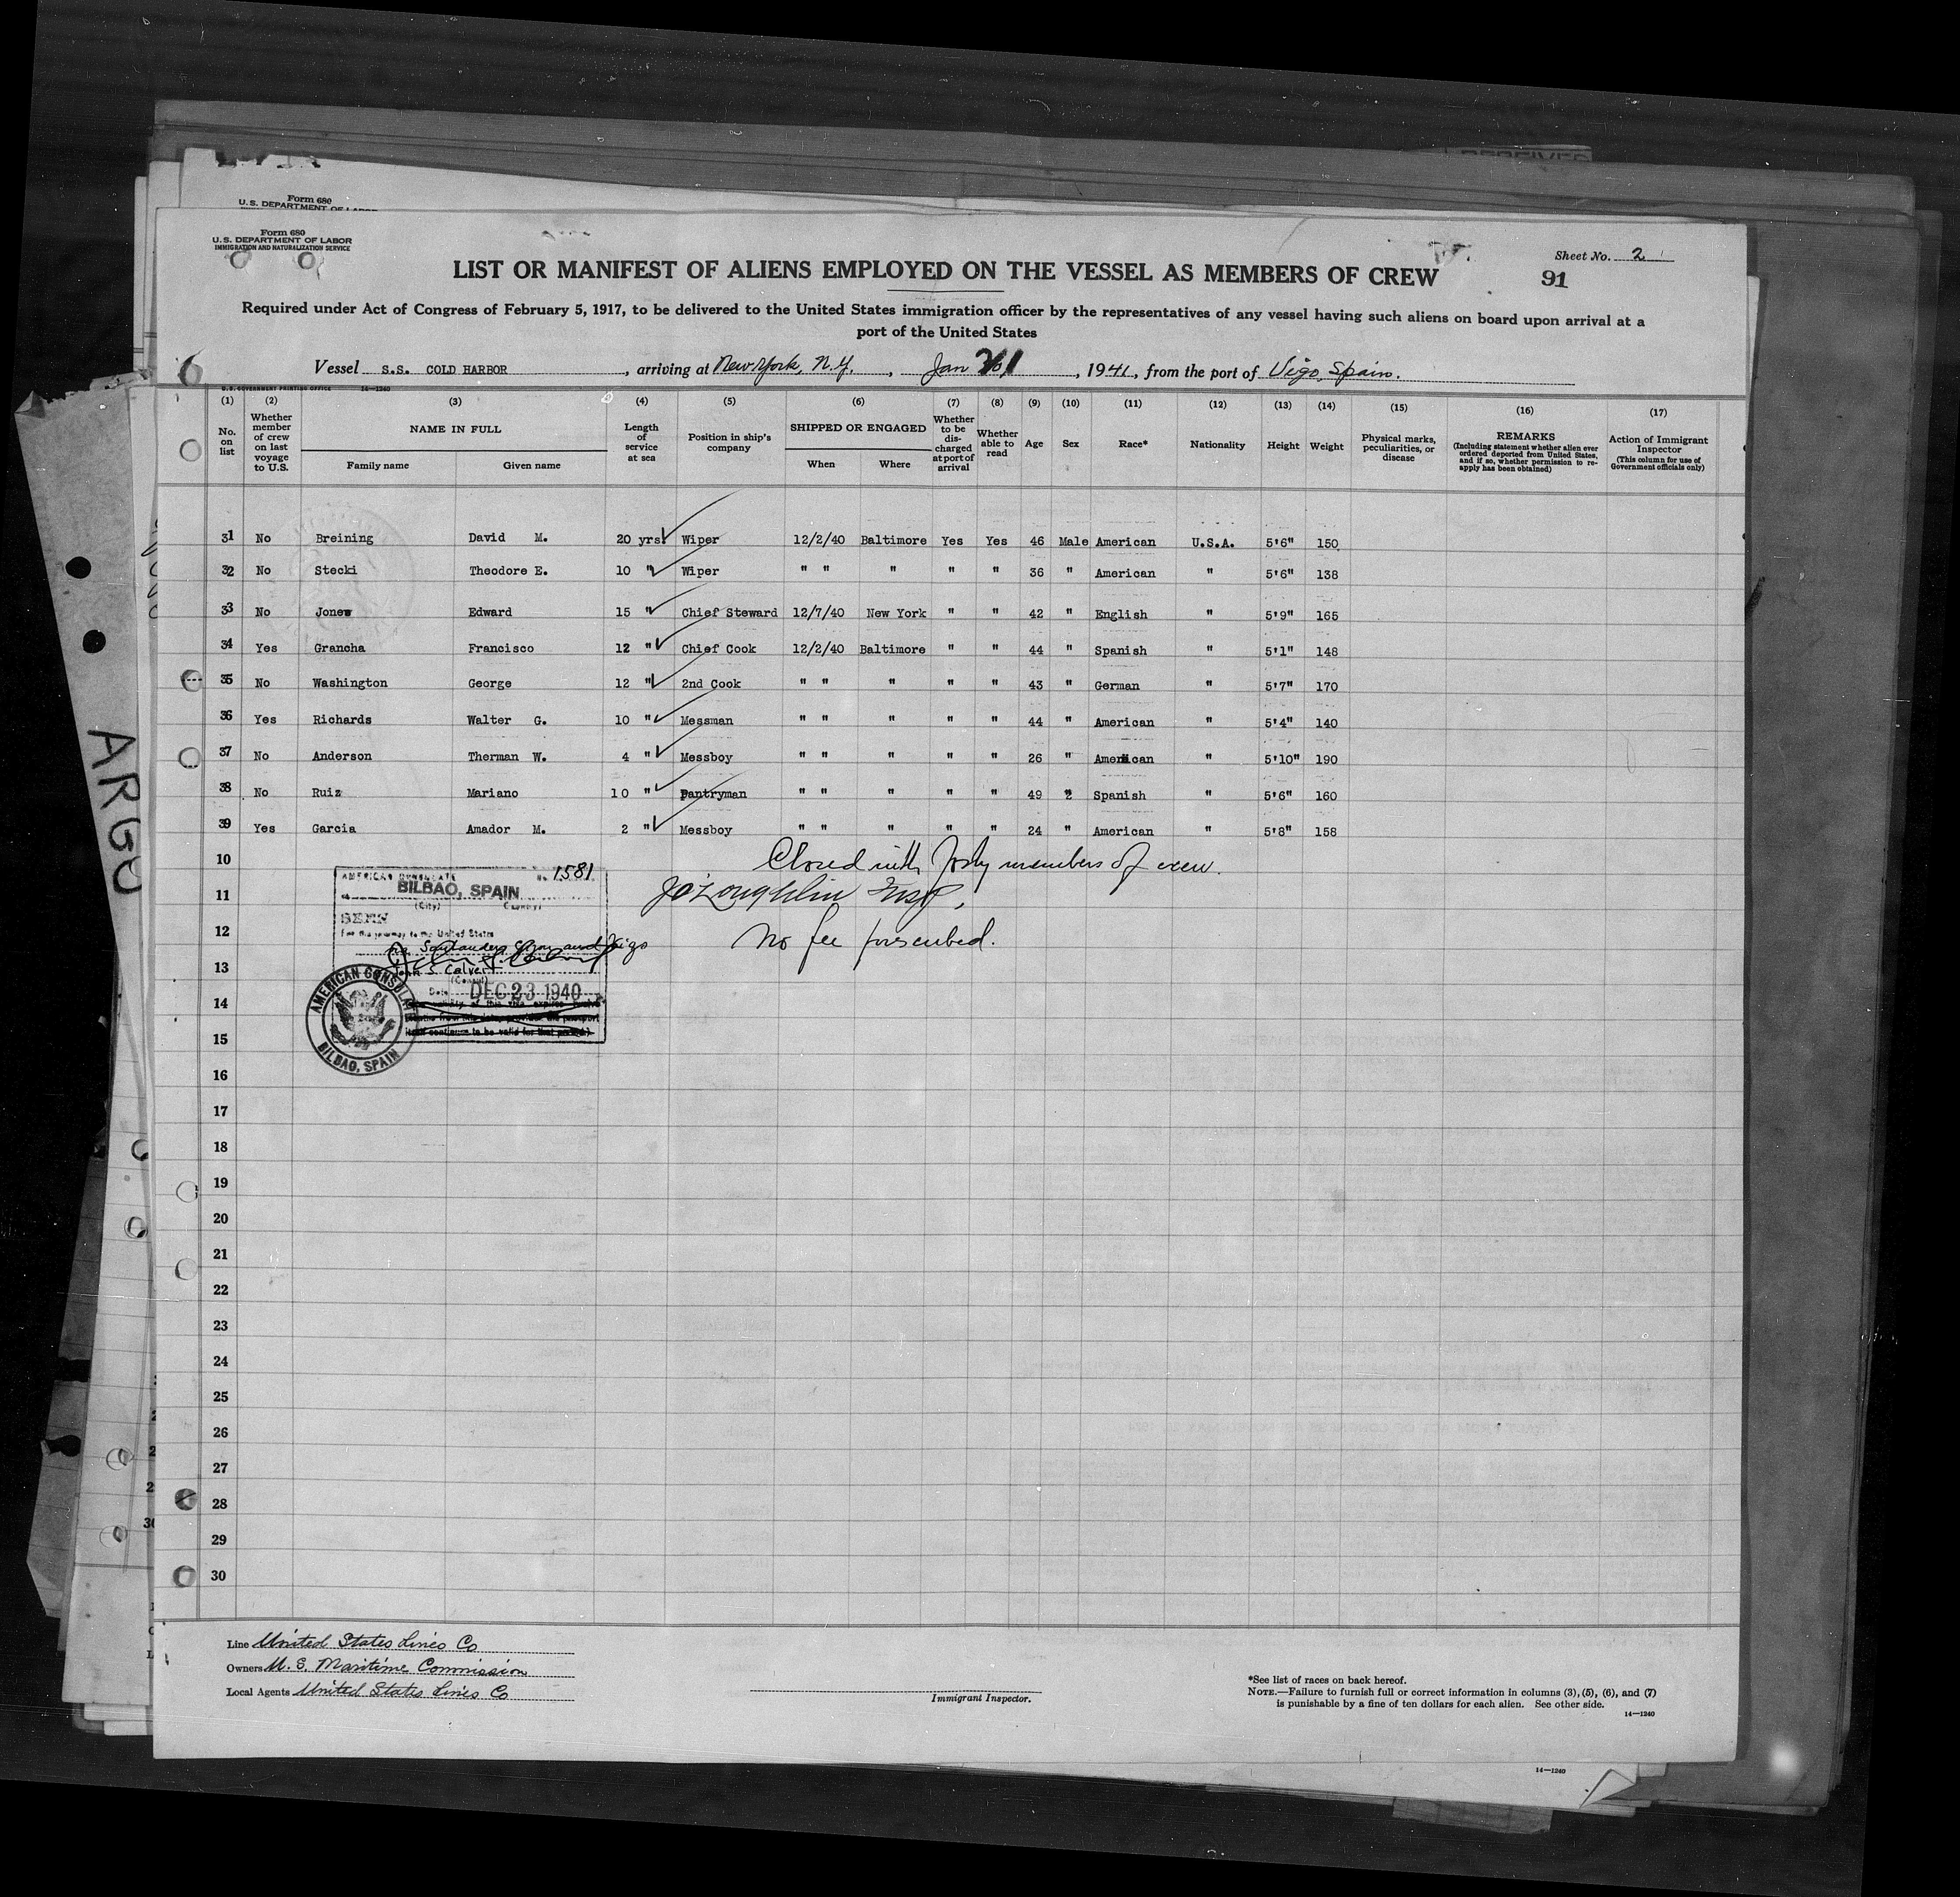 Form 680
U.S. DEPARTMENT OF LABOR
Form 680
U.S. DEPARTMENT OF LABOR
IMMIGRATION AND NATURALIZATION SERVICE
Sheet No. 2
91
LIST OR MANIFEST OF ALIENS EMPLOYED ON THE VESSEL AS MEMBERS OF CREW
Required under Act of Congress of February 5, 1917, to be delivered to the United States immigration officer by the representatives of any vessel having such aliens on board upon arrival at a
port of the United States
Vessel S.S. COLD HARBOR, arriving at New York, N.Y., Jan, 1941, from the port of Vigo, Spain.
U.S. GOVERNMENT PRINTING OFFICE 14—1240
(1) (2) (3) (4) (5) (6) (7) (8) (9) (10) (11) (12) (13) (14) (15) (16) (17)
No. on list
Whether member of crew on last voyage to U.S.
NAME IN FULL
Family name Given name
Length of service at sea
Position in ship's company
SHIPPED OR ENGAGED
When Where
Whether to be discharged at port of arrival
Whether able to read
Age
Sex
Race*
Nationality
Height
Weight
Physical marks, peculiarities, or disease
REMARKS
(Including statement whether alien ever ordered deported from United States, and if so, whether permission to reapply has been obtained)
Action of Immigrant Inspector
(This column for use of Government officials only)
31 No Breining David M. 20 yrs. Wiper 12/2/40 Baltimore Yes Yes 46 Male American U.S.A. 5'6" 150
32 No Stecki Theodore E. 10 " Wiper " " " " " 36 " American " 5'6" 138
33 No Jones Edward 15 " Chief Steward 12/7/40 New York " " 42 " English " 5'9" 165
34 Yes Grancha Francisco 12 " Chief Cook 12/2/40 Baltimore " " 44 " Spanish " 5'1" 148
35 No Washington George 12 " 2nd Cook " " " " " 43 " German " 5'7" 170
36 Yes Richards Walter G. 10 " Messman " " " " " 44 " American " 5'4" 140
37 No Anderson Therman W. 4 " Messboy " " " " " 26 " American " 5'10" 190
38 No Ruiz Mariano 10 " Pantryman " " " " " 49 2 Spanish " 5'6" 160
39 Yes Garcia Amador M. 2 " Messboy " " " " " 24 " American " 5'8" 158
10 Closed with forty members of crew.
11 J O'Loughlin Insp.
12 No fee prescribed.
AMERICAN CONSULATE No. 1581
BILBAO, SPAIN
(City) (Country)
SEEN
For the journey to the United States
Santander and Vigo
John S. Calvert
(Consul)
Date DEC 23 1940
AMERICAN CONSULATE
BILBAO, SPAIN
13
14
15
16
17
18
19
20
21
22
23
24
25
26
27
28
29
30
ARGO
Line United States Lines Co
Owners U. S. Maritime Commission
Local Agents United States Lines Co
Immigrant Inspector.
*See list of races on back hereof.
NOTE.—Failure to furnish full or correct information in columns (3), (5), (6), and (7)
is punishable by a fine of ten dollars for each alien. See other side.
14—1240
14—1240